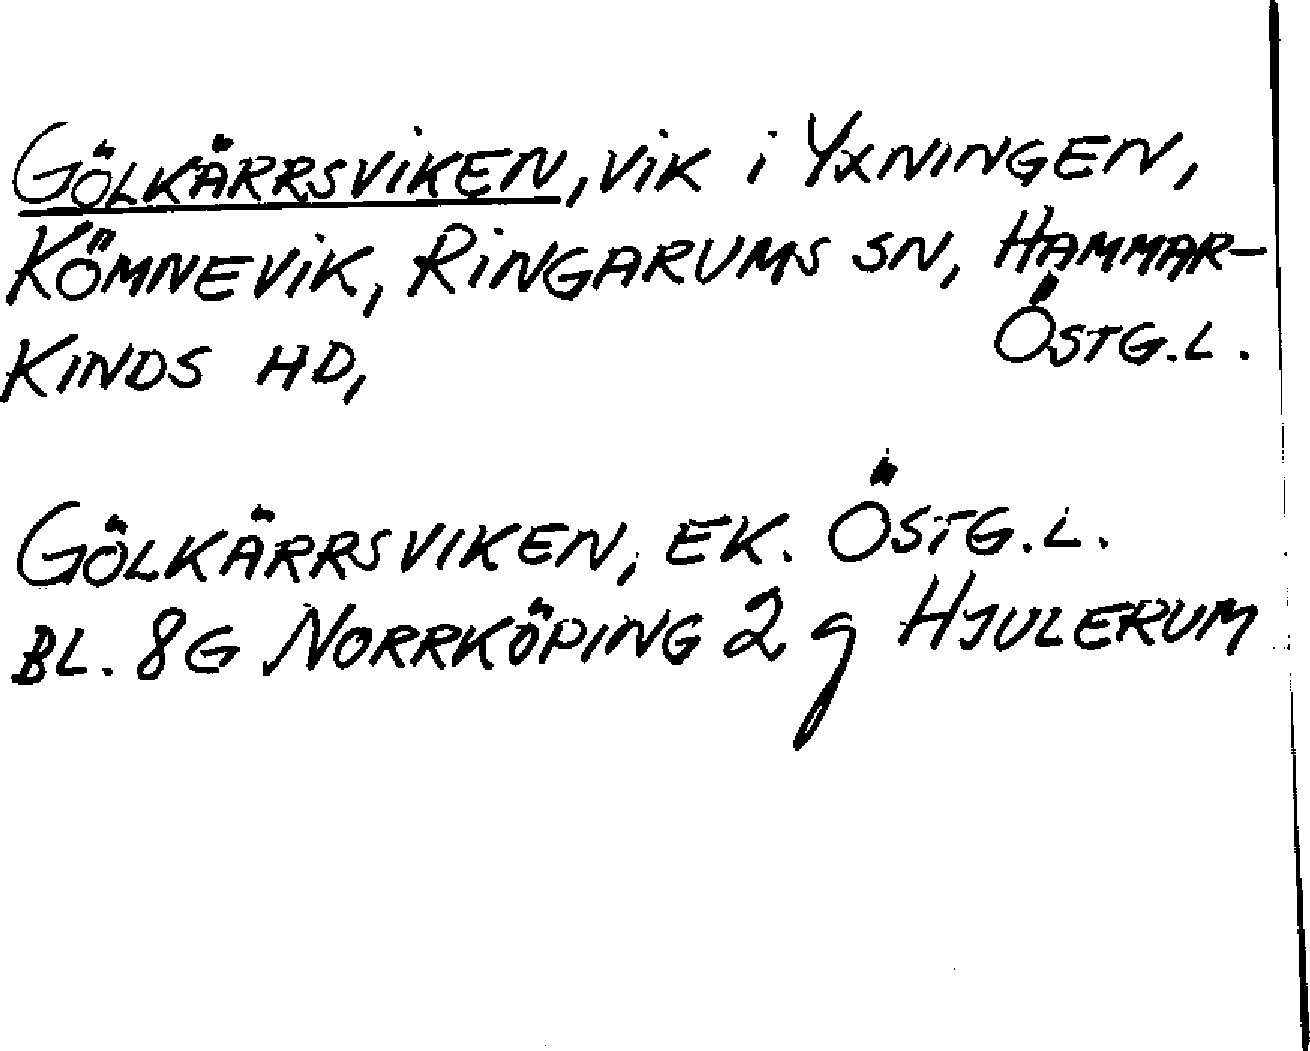 GÖLKÄRRSVIKEN, VIK i YXNINGEN,
KÖMNEVIK, RINGARUMS SN, HAMMAR-
KINDS HD, ÖSTG.L.
GÖLKÄRRSVIKEN, EK. ÖSTG.L.
BL. 8G NORRKÖPING 2 g HJULERUM